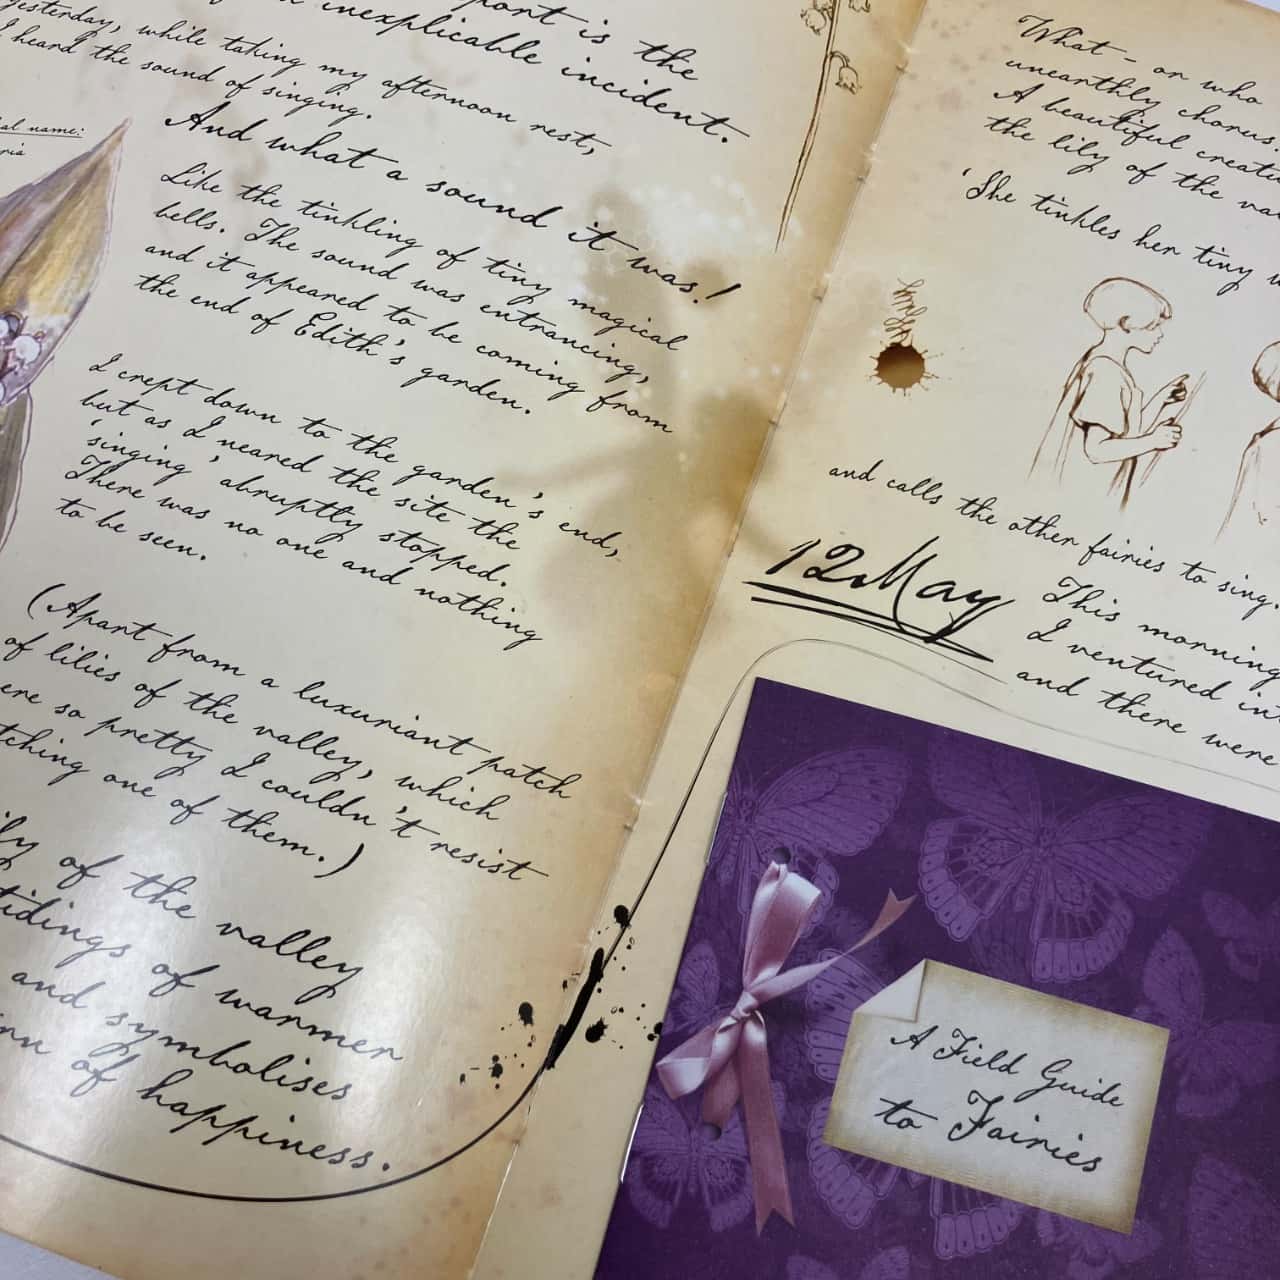 is the
inexplicable incident.
yesterday, while taking my afternoon rest,
I heard the sound of singing.
And what a sound it was!
Like the tinkling of tiny magical
bells. The sound was entrancing,
and it appeared to be coming from
the end of Edith's garden.
I crept down to the garden's end,
but as I neared the site the
'singing' abruptly stopped.
There was no one and nothing
to be seen.
(Apart from a luxuriant patch
of lilies of the valley, which
so pretty I couldn't resist
one of them.)
name:
of the valley
tidings of warmer
and symbolises
of happiness.
What – or who
unearthly chorus.
A beautiful
the lily of the
'She tinkles her tiny
and calls the other fairies to sing.
12 May
This morning
I ventured
and there were
A Field Guide
to Fairies